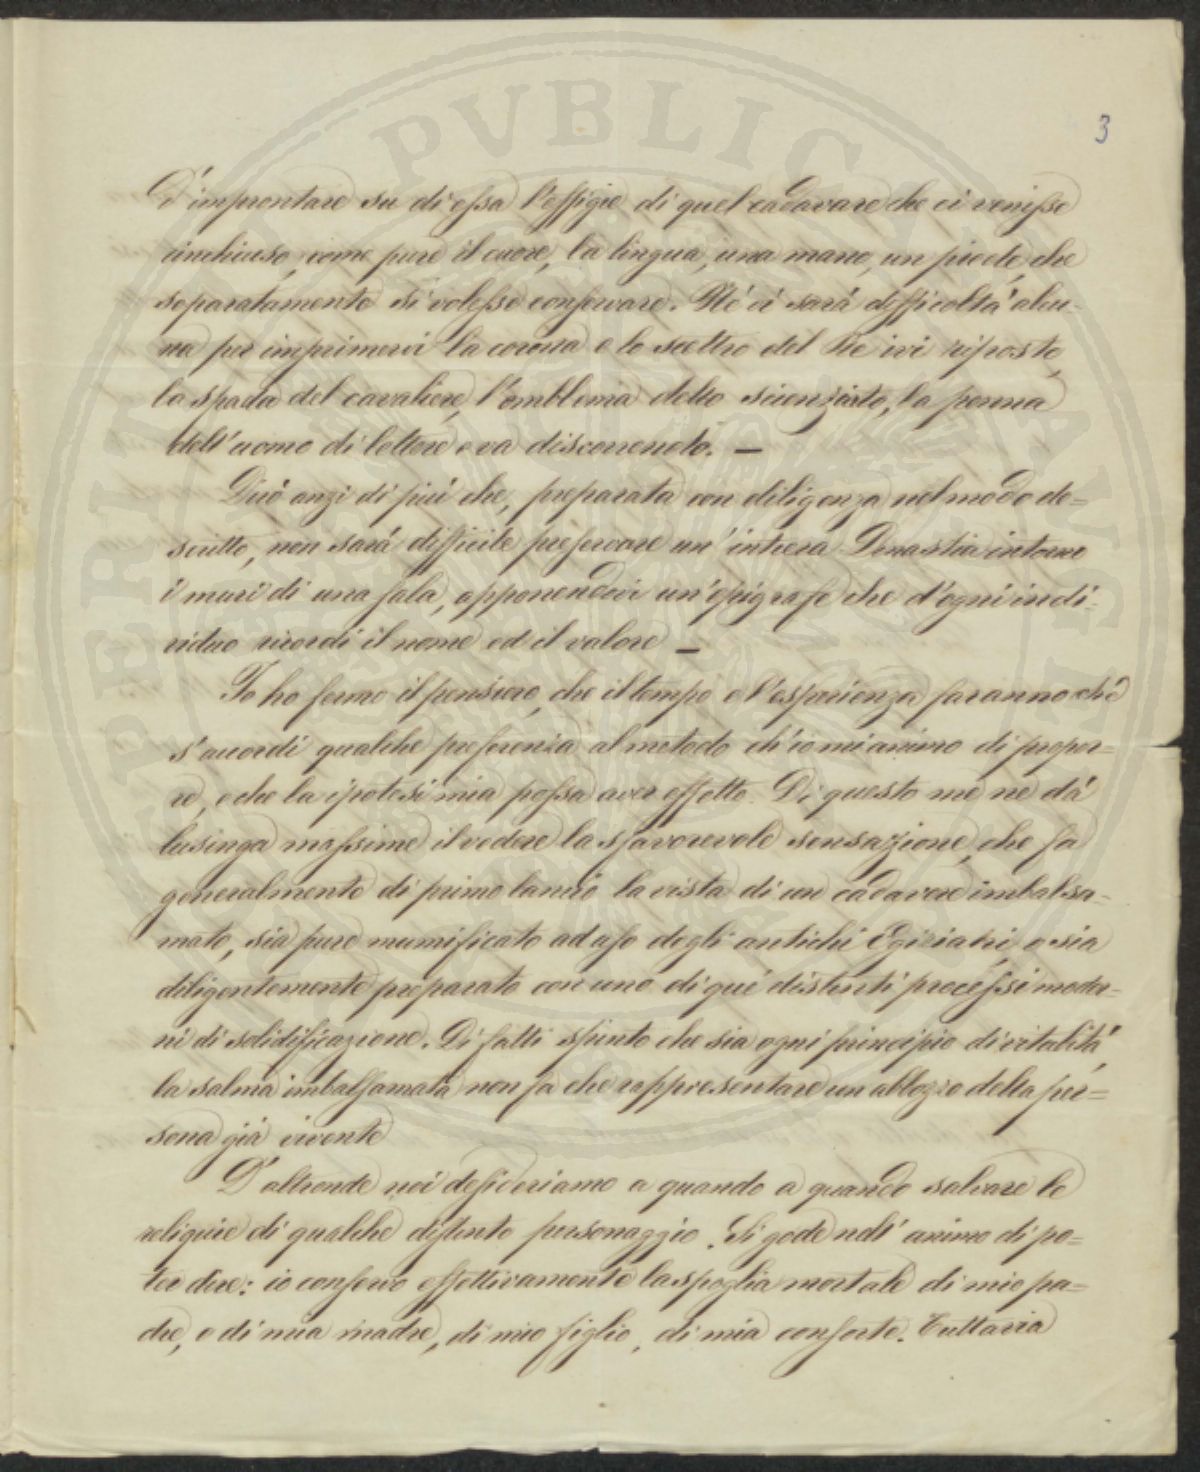 3
D'improntare su di essa l'effigie di quel cadavare che ci venisse
rinchiuso, come pure il cuore, la lingua, una mano, un piede, che
separatamente si volesse conservare. Nè ci sarà difficoltà alcu-
na per imprimervi la corona e lo scettro del Re ivi riposto,
la spada del cavaliere, l'emblema dello scienziato, la penna
dell'uomo di lettere e va discorrendo. —
Dirò anzi di più che, preparata con diligenza nel modo de=
scritto, non sarà difficile preservare un'intiera Dinastia intorno
i muri di una sala, apponendovi un'epigrafe che d'ogni indi-
viduo ricordi il nome ed il valore —
Io ho fermo il pensiero, che il tempo e l'esperienza faranno che
s'accordi qualche preferenza al metodo ch'io mi animo di propor=
re, e che la ipotesi mia possa aver effetto. Di questo me ne dà
lusinga massime il vedere la sfavorevole sensazione, che fa
generalmente di primo lancio la vista di un cadavere imbalsa-
mato, sia pure mumificato ad uso degli antichi Egiziani, o sia
diligentemente preparato con uno di quei distinti processi moder-
ni di solidificazione. Di fatti spento che sia ogni principio di vitalità,
la salma imbalsamata non fa che rappresentare un abbozzo della per=
sona già vivente
D'altronde noi desideriamo a quando a quando salvare le
reliquie di qualche distinto personaggio. Si gode nell'animo di po=
ter dire: io conservo effettivamente la spoglia mortale di mio pa=
dre, o di mia madre, di mio figlio, di mia consorte. Tuttavia
PVBLIC